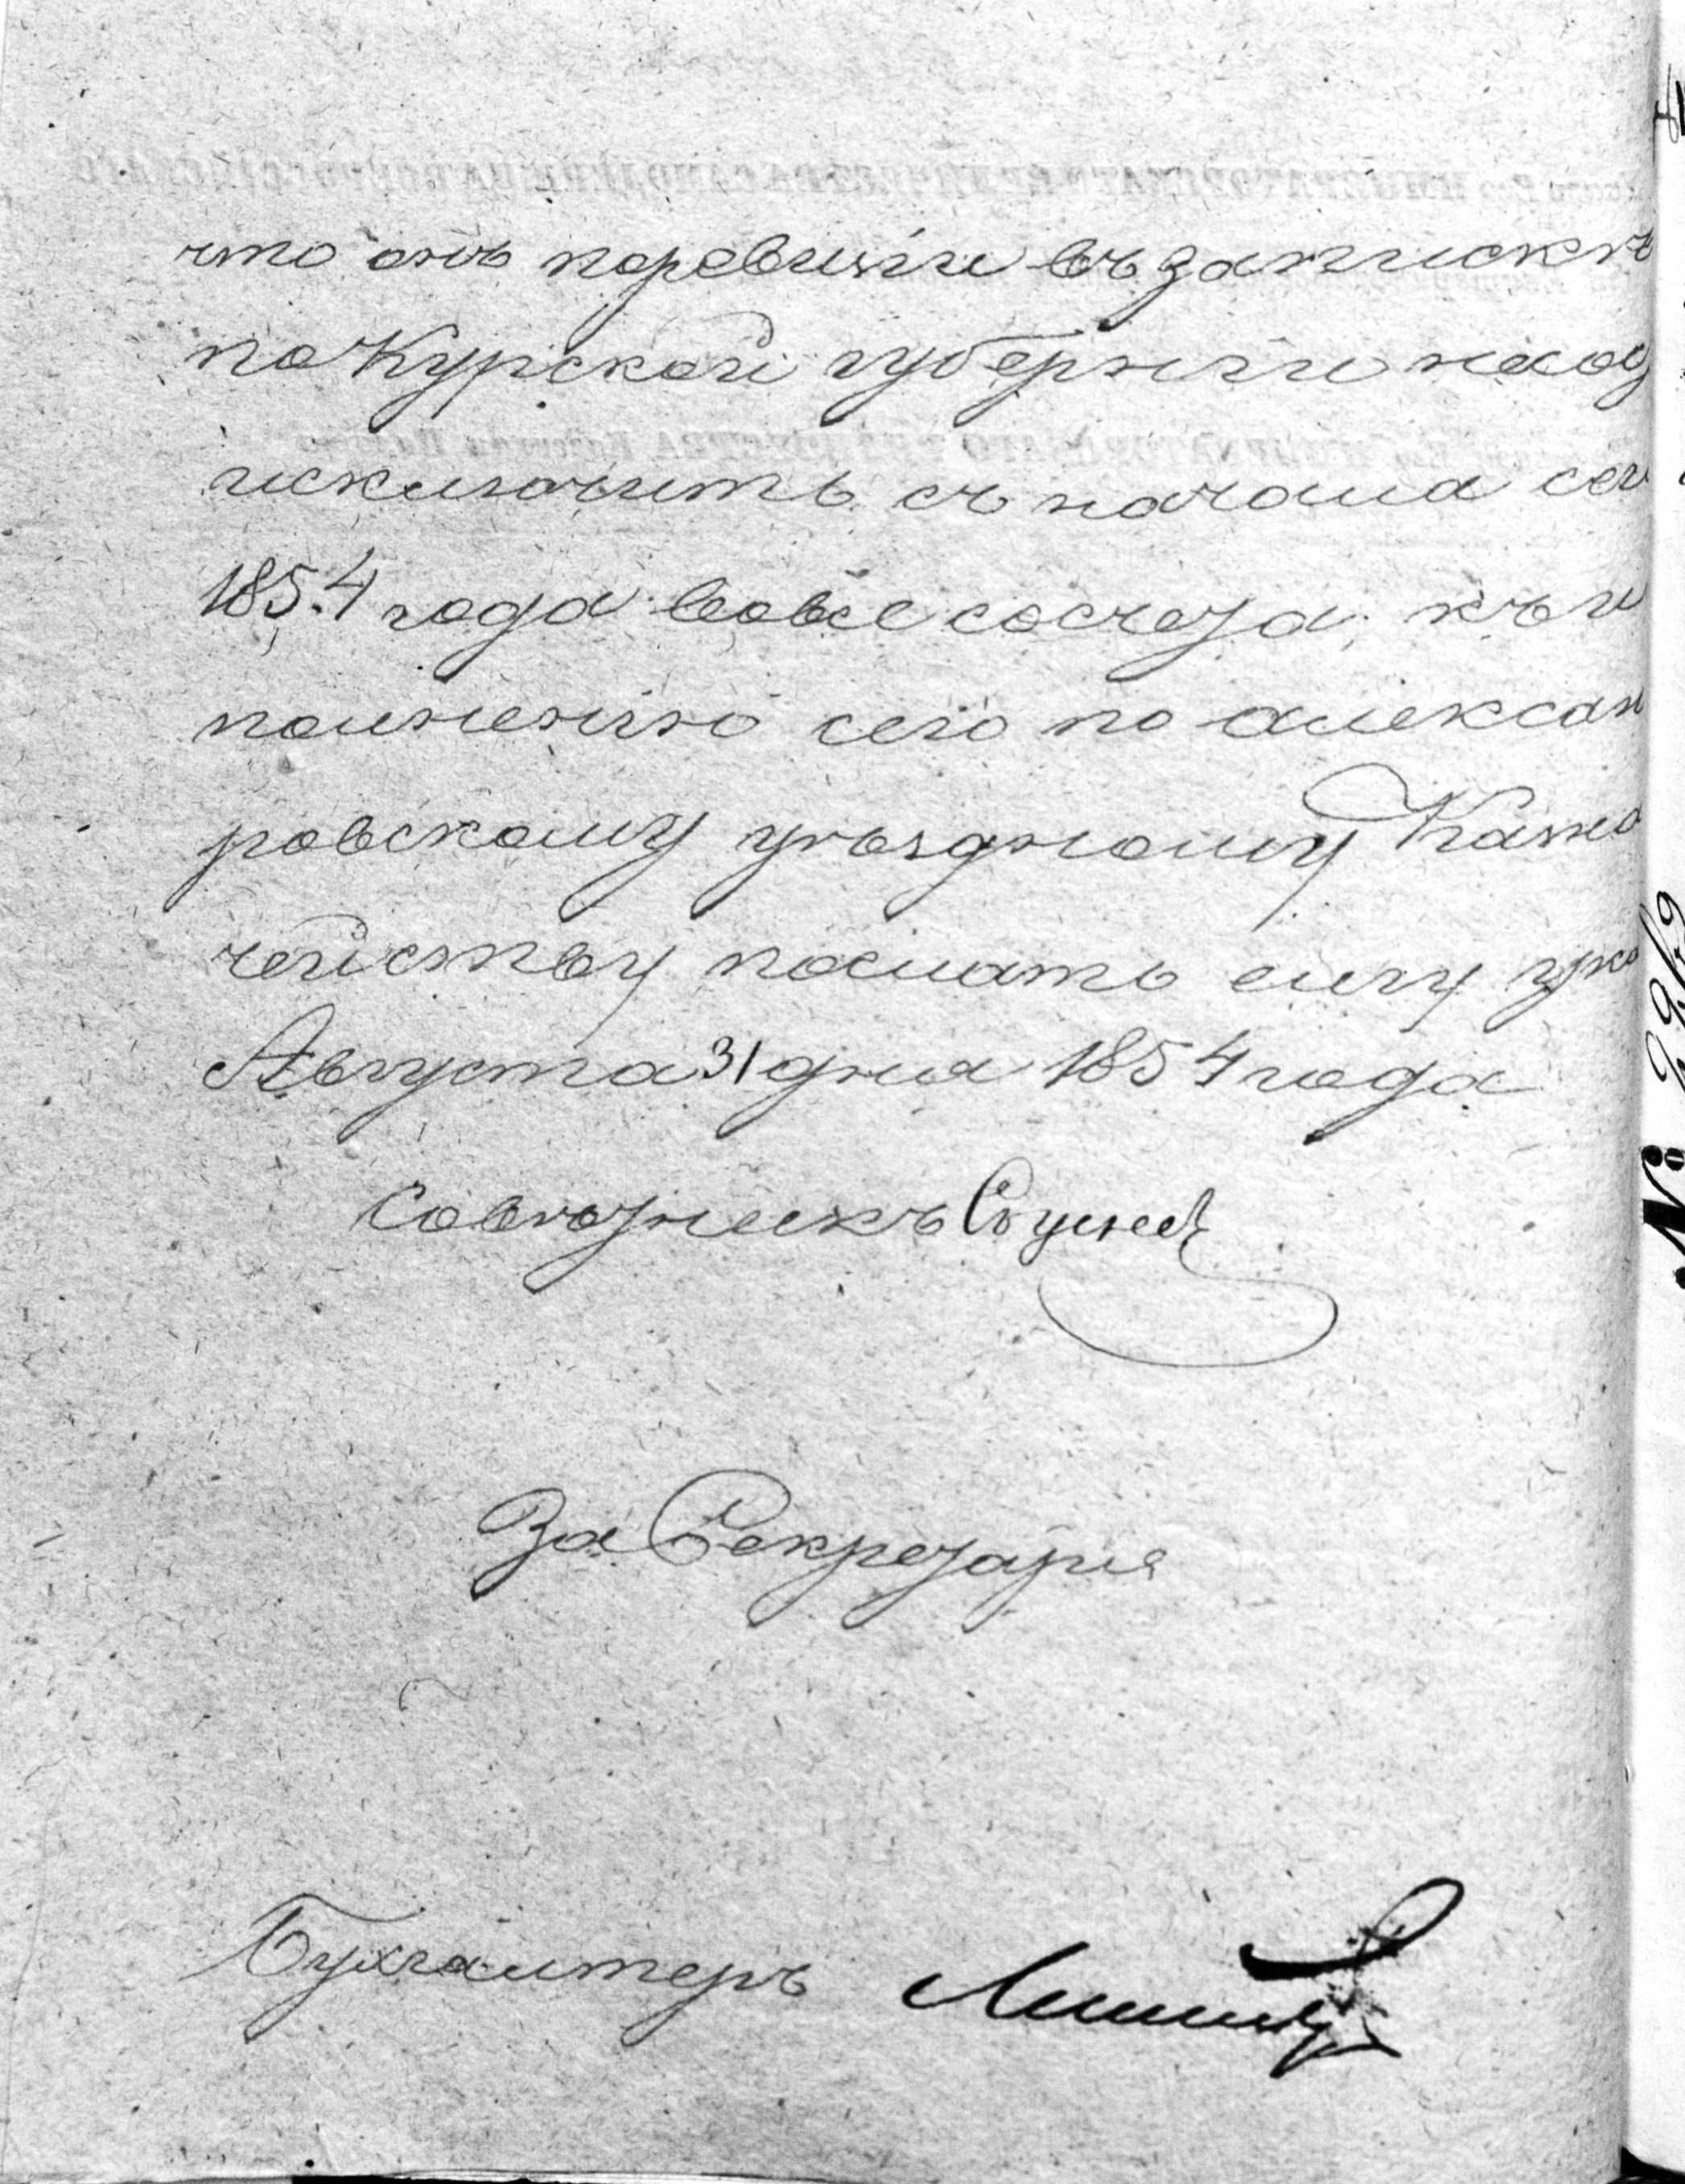 что онъ поревизіи въ запискѣ
по Курской губерніи
исключить съ начала сег
1854 года вовсе съ счета, къ и
полненію сего по алексан
ровскому уѣздному Казна
чейству послать ему ука
Августа 31 дня 1854 года
Совѣтникъ
За Секретаря
Бухгалтеръ
№